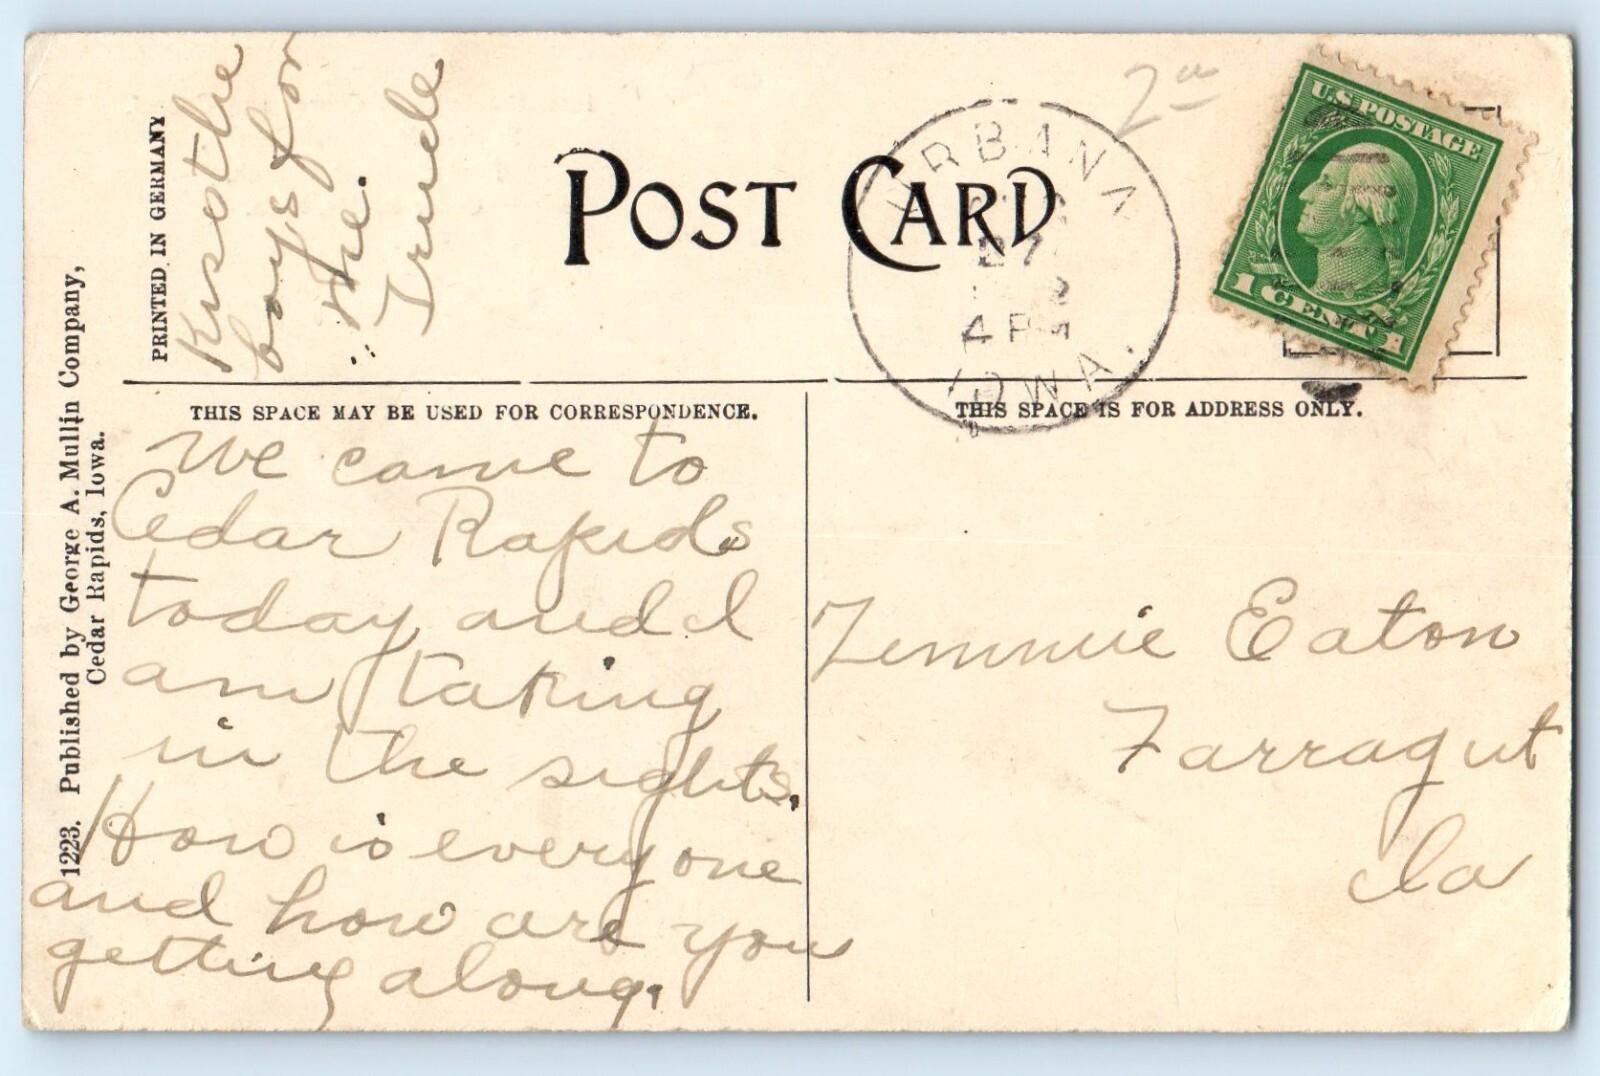 PRINTED IN GERMANY
Kiss the
boys for
me.
Trude
POST CARD
2
URBANA
27
4 PM
IOWA.
U.S. POSTAGE
1 CENT 1
1223. Published by George A. Mullin Company,
Cedar Rapids, Iowa.
THIS SPACE MAY BE USED FOR CORRESPONDENCE.
THIS SPACE IS FOR ADDRESS ONLY.
We came to
Cedar Rapids
today and I
am taking
in the sights.
How is everyone
and how are you
getting along.
Eaton
Farragut
Ia